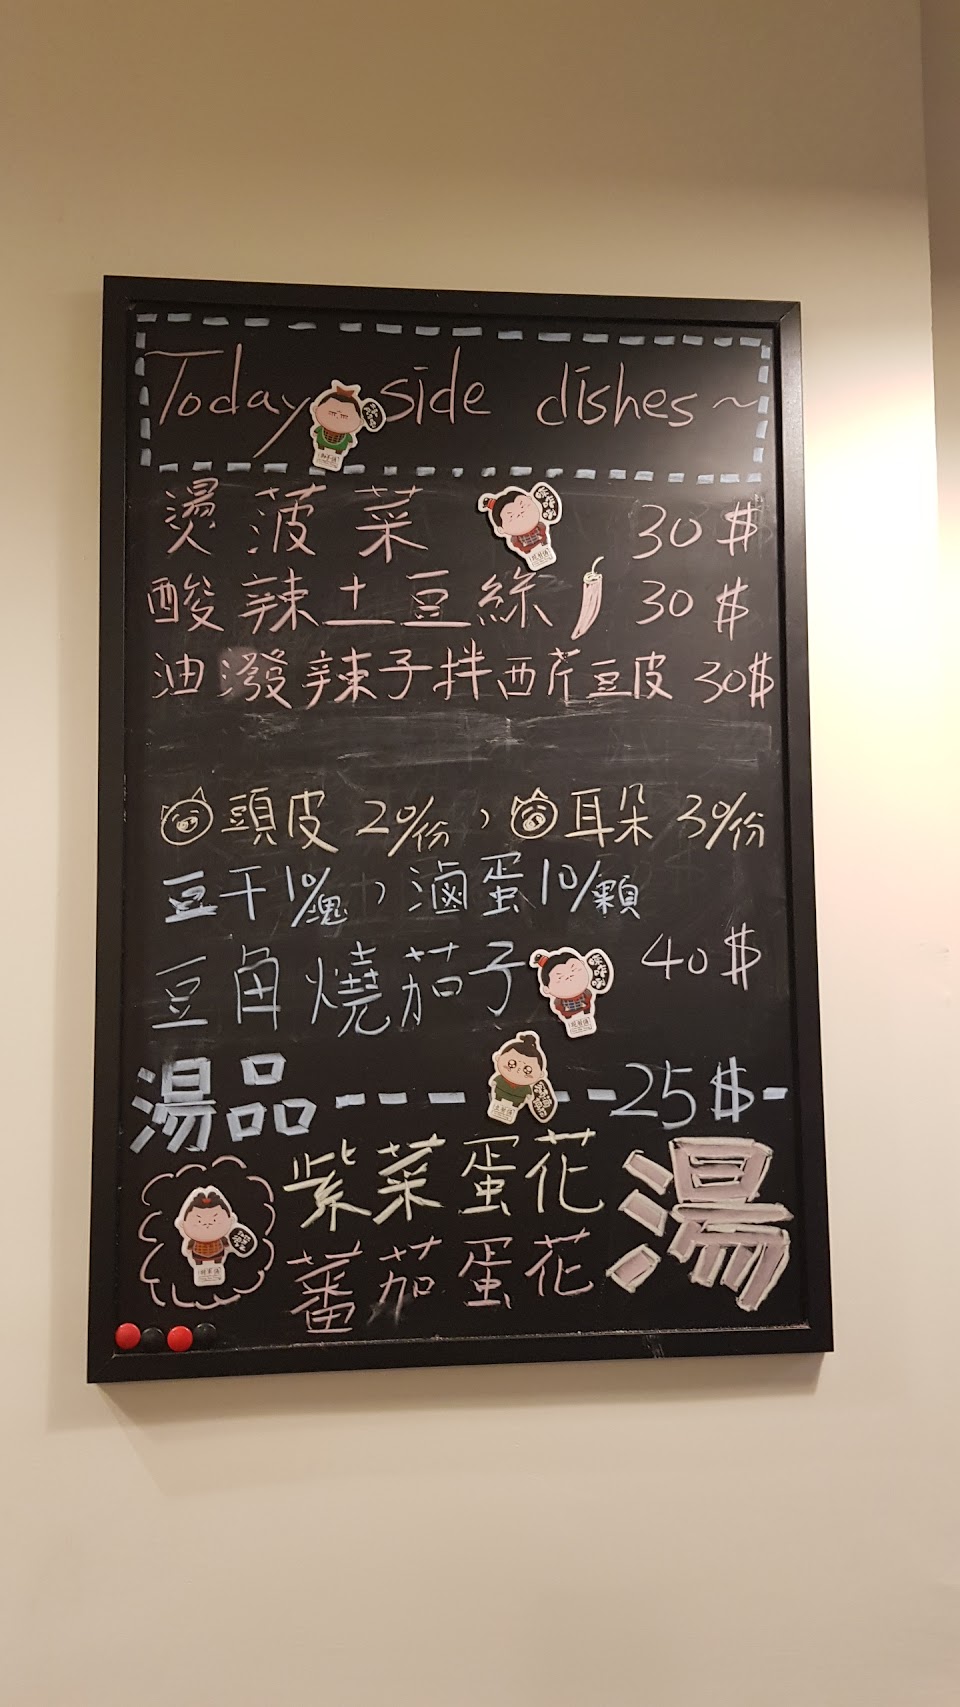 Today side dishes~
燙菠菜 30$
酸辣土豆絲 30$
油潑辣子拌西芹豆皮 30$
頭皮 20/份, 耳朵 30/份
豆干10/塊, 滷蛋10/顆
豆角燒茄子 40$
湯品---25$-
紫菜蛋花
蕃茄蛋花
湯